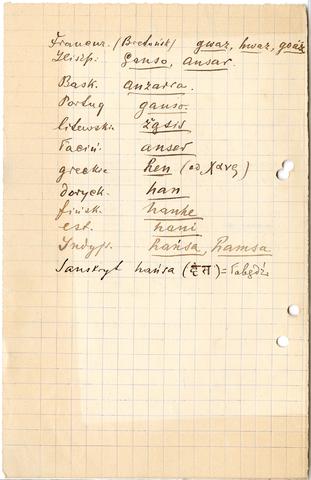 Francuz. (Bretońsk) gwaz, hwaz, goáz
Hiszp: Ganso, ansar.
Bask. anzarra.
Portug ganso.
litewski. żąsis
Łaciń. anser
greckie hen (od χανς)
doryck. han
fińsk. hanhe
est. hani
Indyjs. hańsa, hamsa
Sanskryt hańsa (हंस) = łabędź